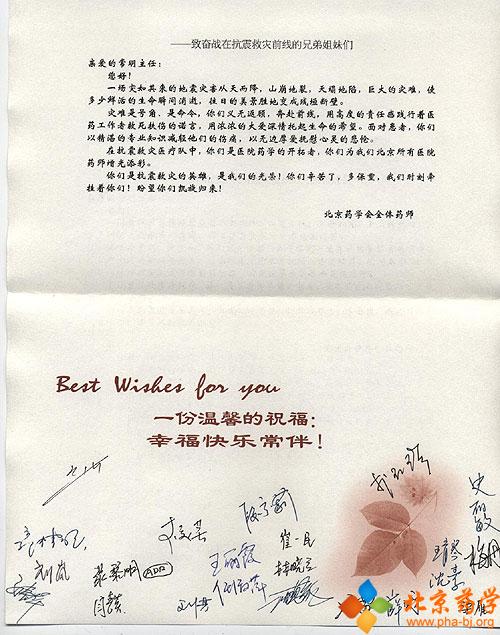 ——致奋战在抗震救灾前线的兄弟姐妹们
亲爱的常明主任：
您好！
一场突如其来的地震灾害从天而降，山崩地裂，天塌地陷，巨大的灾难，使
多少鲜活的生命瞬间消逝，往日的美景胜地变成残垣断壁。
灾难是号角、是命令，你们义无返顾，奔赴前线，用高度的责任感践行着医
药工作者救死扶伤的诺言，用浓浓的大爱深情托起生命的希望。面对患者，你们
以精湛的专业知识减轻他们的伤痛，以无边厚爱抚慰心灵的悲怆。
在抗震救灾医疗队中，你们是医院药学的开拓者，你们为我们北京所有医院
药师增光添彩。
你们是抗震救灾的英雄，是我们的光荣！你们辛苦了，多保重，我们时刻牵
挂着你们！盼望你们凯旋归来！
北京药学会全体药师
Best Wishes for you
一份温馨的祝福：
幸福快乐常伴！
史丽敏
王丽霞
刘岚
ADR
沈素
北京药学
www.pha-bj.org